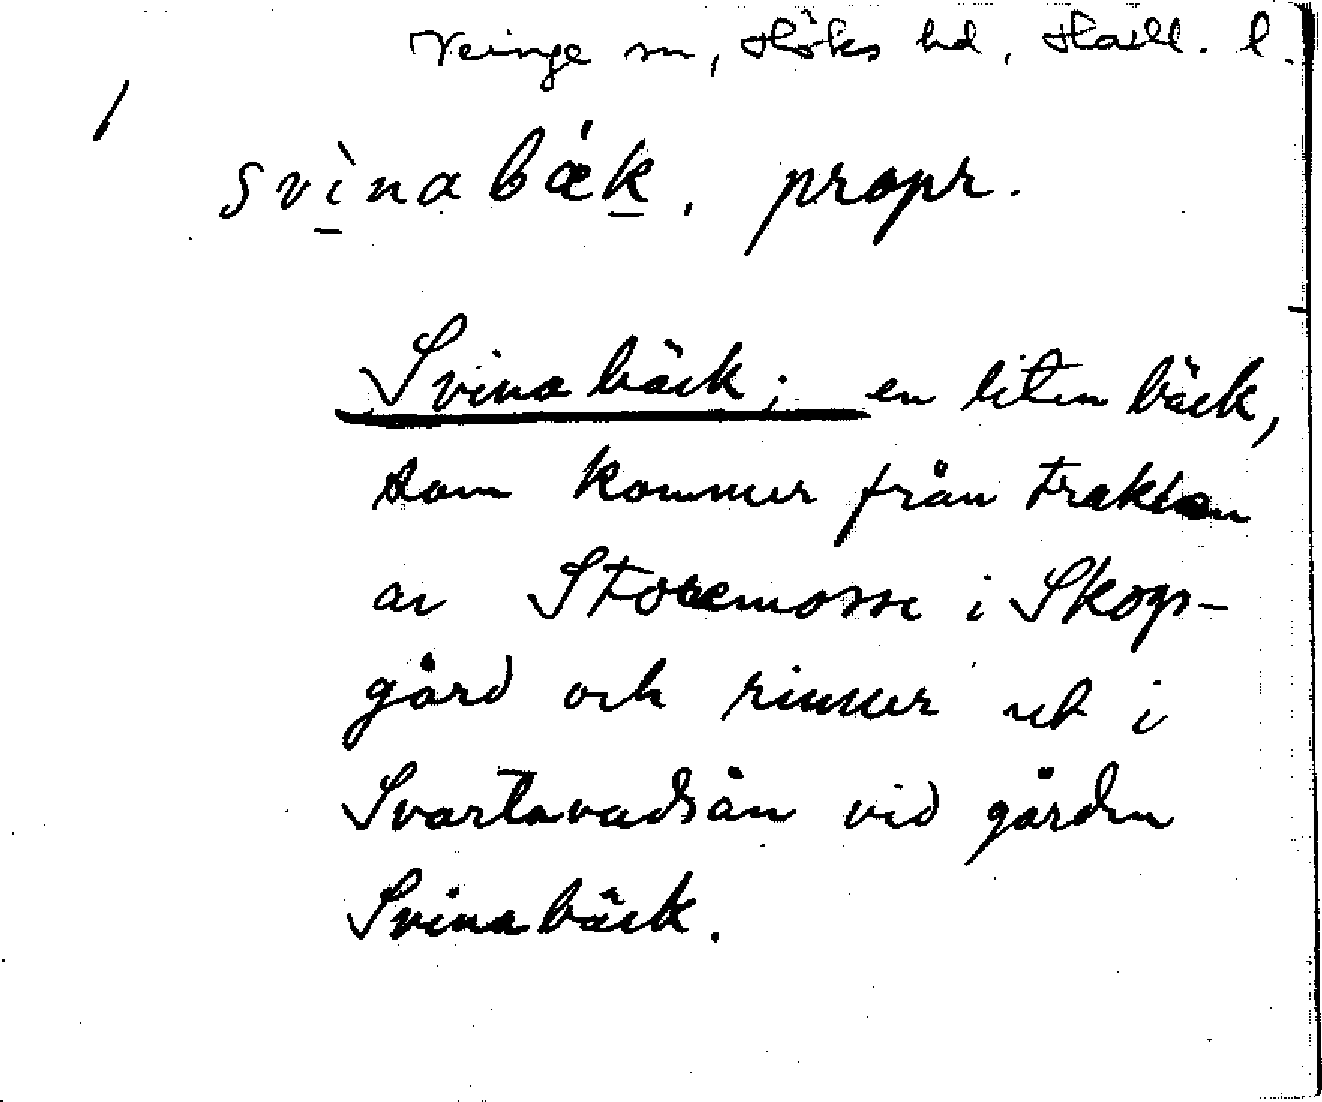 Veinge sn, Höks hd, Hall. l.
/
svìnabǽk, propr.
Svinabäck; en liten bäck,
som kommer från trakten
av Storemosse i Skogs-
gård och rinner ut i
Svartavadsån vid gården
Svinabäck.